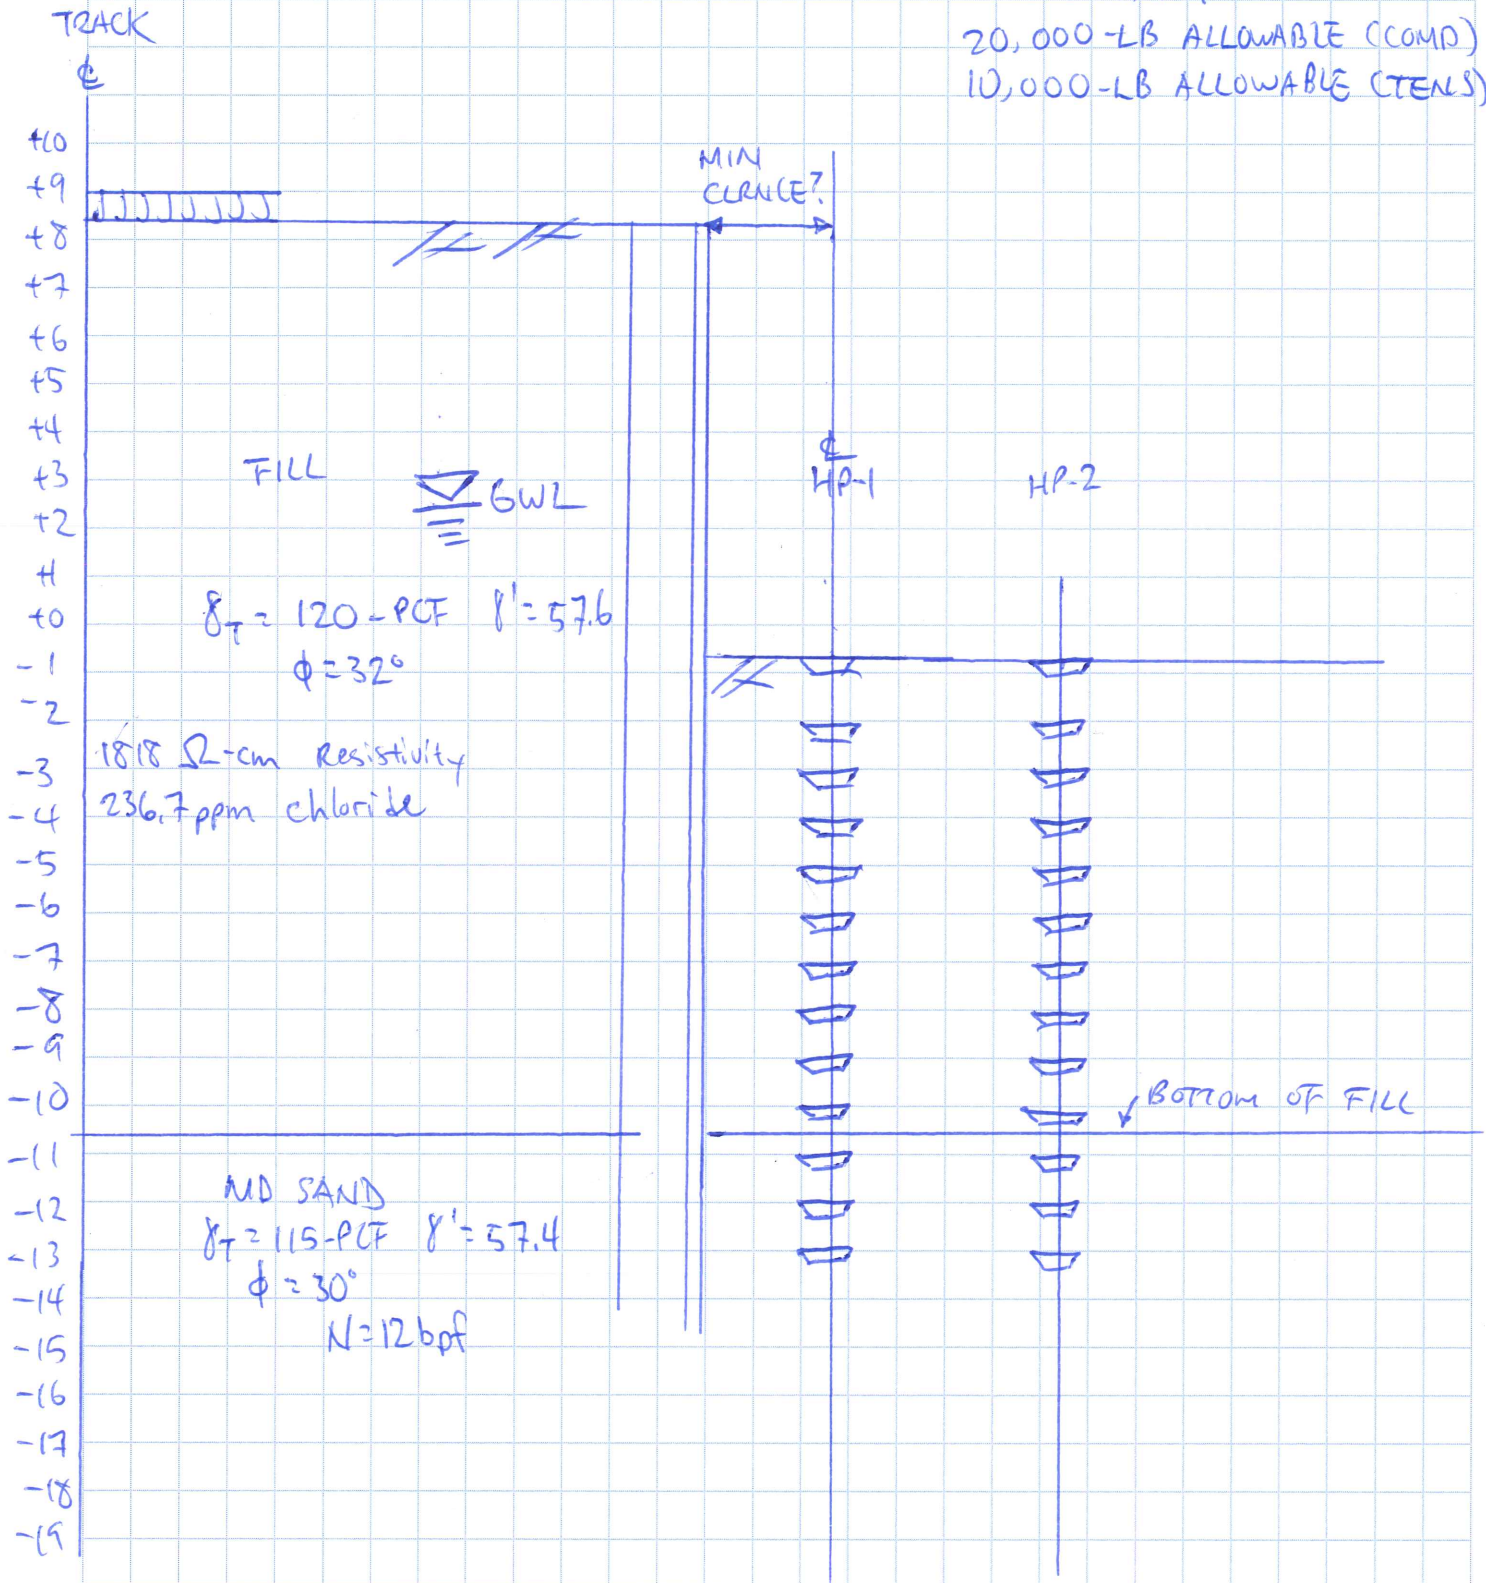 TRACK
℄
20,000-LB ALLOWABLE (COMP)
10,000-LB ALLOWABLE (TENS)
+10
+9
+8
+7
+6
+5
+4
+3
+2
+1
+0
-1
-2
-3
-4
-5
-6
-7
-8
-9
-10
-11
-12
-13
-14
-15
-16
-17
-18
-19
MIN
CLRNCE?
FILL
GWL
℄
HP-1
HP-2
γT = 120-PCF γ' = 57.6
ϕ = 32°
1818 Ω-cm Resistivity
236.7 ppm chloride
BOTTOM OF FILL
MD SAND
γT = 115-PCF γ' = 57.4
ϕ = 30°
N=12 bpf